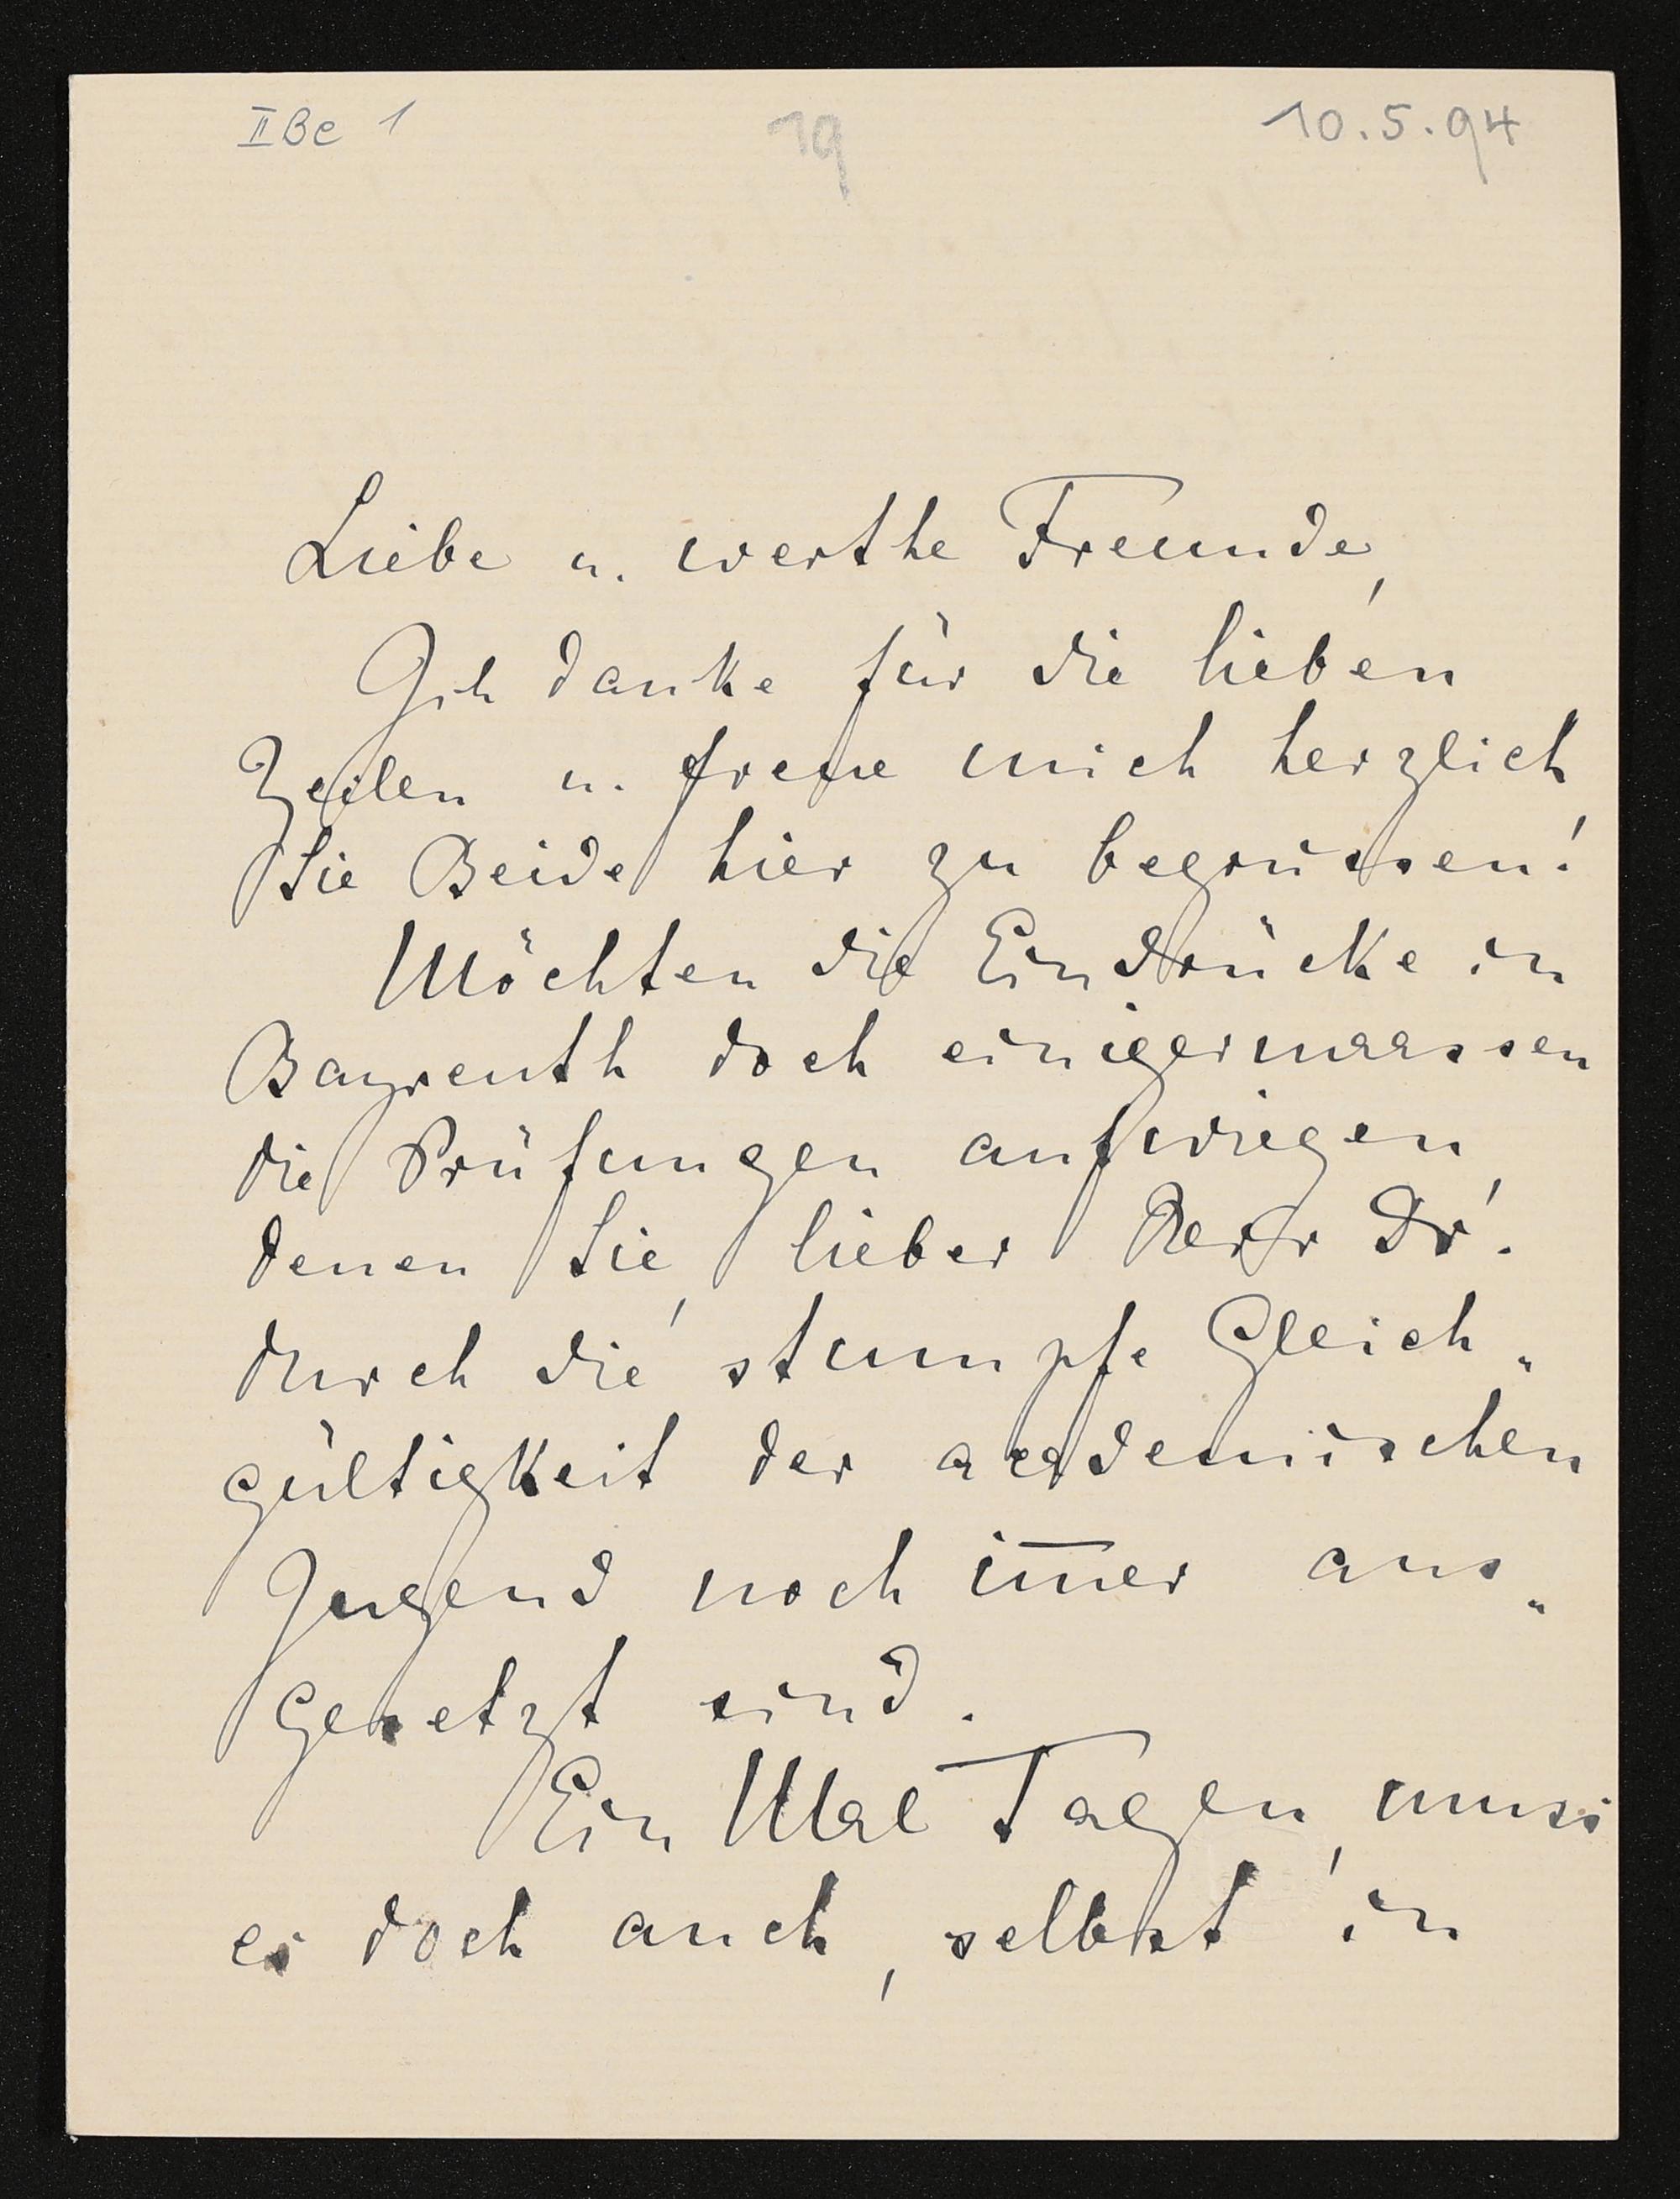 II Be 1 19 10.5.94
Liebe u. werthe Freunde,
Ich danke für die lieben
Zeilen u. freue mich herzlich,
Sie Beide hier zu begrüssen!
Möchten die Eindrücke in
Bayreuth doch einigermaassen
die Prüfungen aufwiegen,
denen Sie, lieber Herr Dr.
durch die stumpfe Gleich„
gültigkeit der academischen
Jugend noch im̅er aus„
gesetzt sind.
Ein Mal Tagen, muss
es doch auch, selbst in